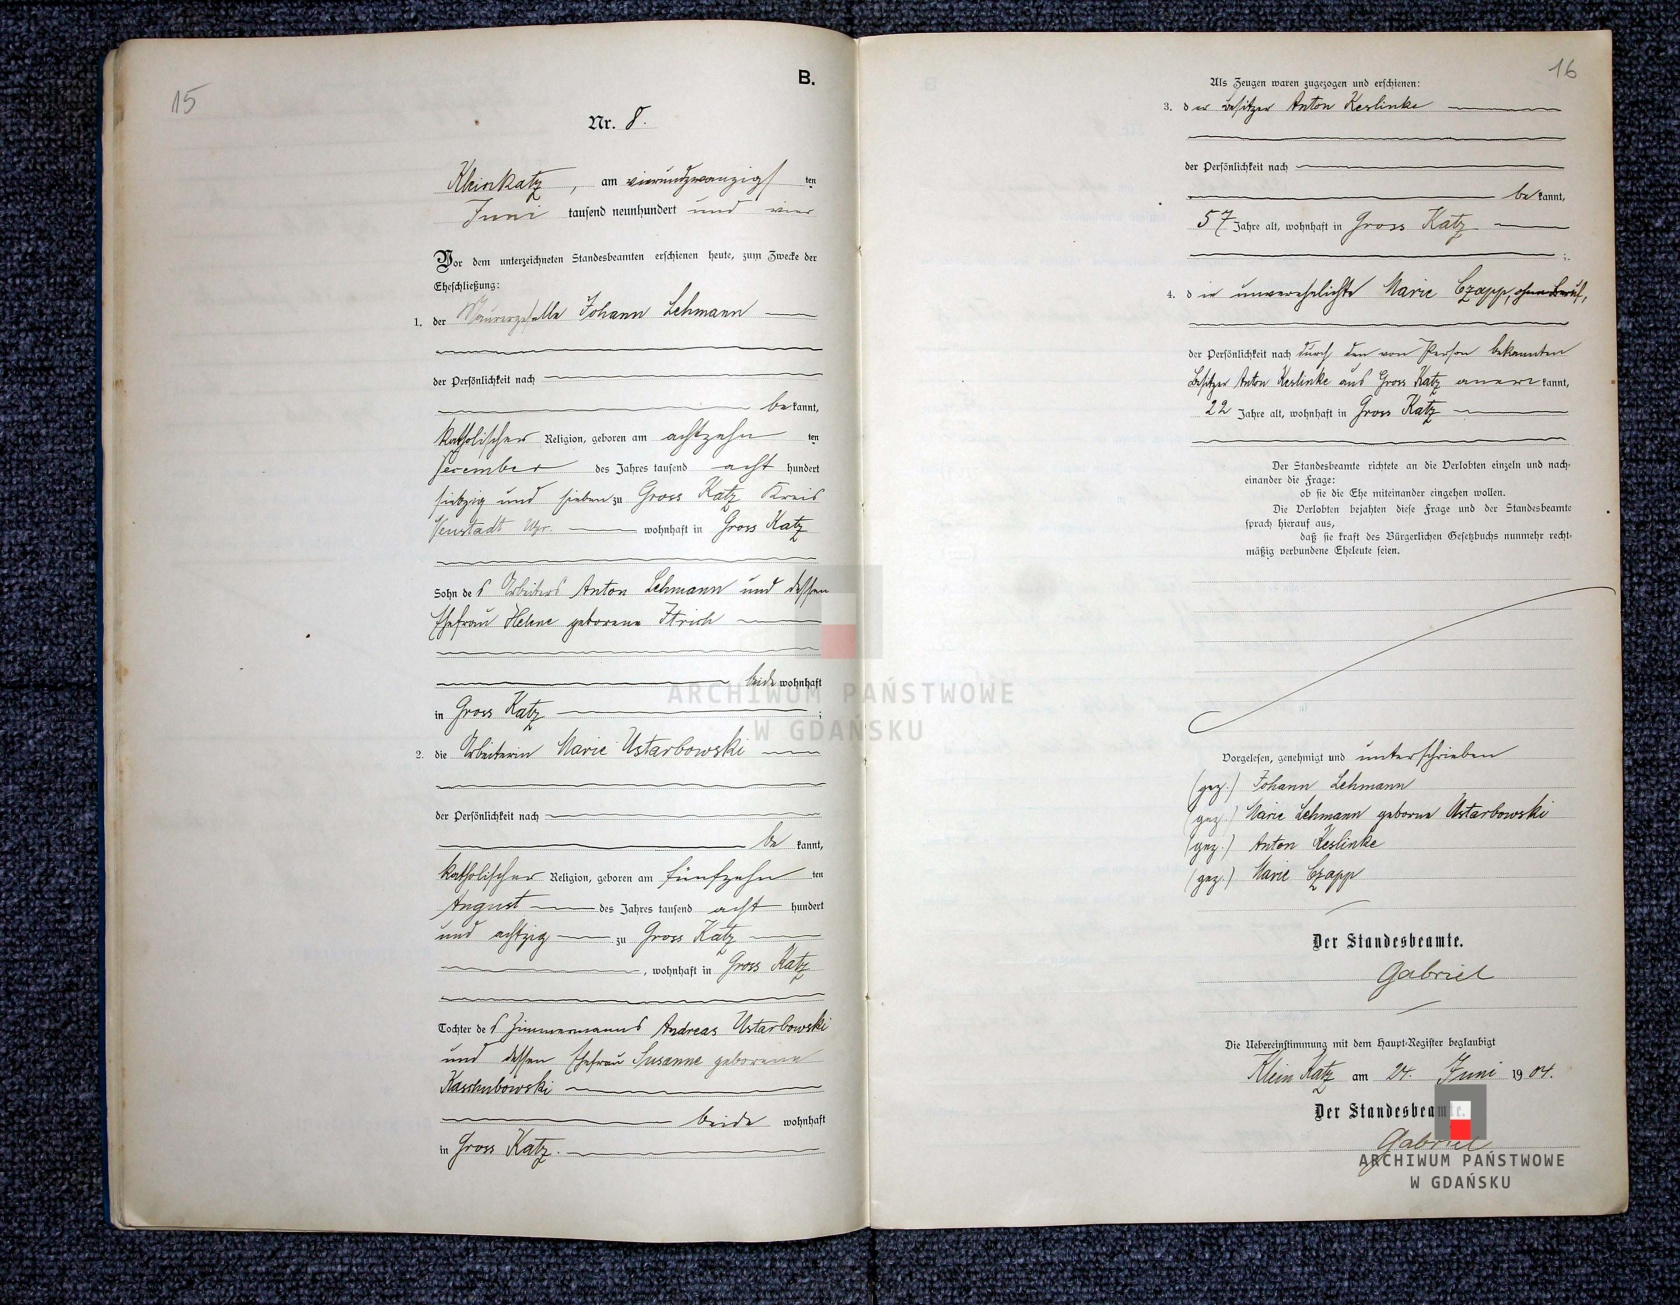 15
B.
Nr. 8.
Kleinkatz, am vierundzwanzigsten
Juni tausend neunhundert und vier
Vor dem unterzeichneten Standesbeamten erschienen heute, zum Zwecke der
Eheschließung:
1. der Maurergeselle Johann Lehmann
der Persönlichkeit nach
bekannt,
katholischer Religion, geboren am achtzehnten
Dezember des Jahres tausend acht hundert
siebzig und sieben zu Gross Katz Kreis
Neustadt Wpr. wohnhaft in Gross Katz
Sohn des Arbeiters Anton Lehmann und dessen
Ehefrau Helene geborene
beide wohnhaft
in Gross Katz ;
2. die Arbeiterin Marie Ustarbowski
der Persönlichkeit nach
bekannt,
katholischer Religion, geboren am fünfzehnten
August des Jahres tausend acht hundert
und achtzig zu Gross Katz
, wohnhaft in Gross Katz
Tochter des Zimmermanns Andreas Ustarbowski
und dessen Ehefrau Susanne geborene
Kaschubowski
beide wohnhaft
in Gross Katz.
16
Als Zeugen waren zugezogen und erschienen:
3. der Besitzer Anton Keslinke
der Persönlichkeit nach
bekannt,
57 Jahre alt, wohnhaft in Gross Katz
;
4. die unverehelichte Marie Czapp, ohne Beruf,
der Persönlichkeit nach durch den von Person bekannten
Besitzer Anton Keslinke aus Gross Katz anerkannt,
22 Jahre alt, wohnhaft in Gross Katz
Der Standesbeamte richtete an die Verlobten einzeln und nach-
einander die Frage:
ob sie die Ehe miteinander eingehen wollen.
Die Verlobten bejahten diese Frage und der Standesbeamte
sprach hierauf aus,
daß sie kraft des Bürgerlichen Gesetzbuchs nunmehr recht-
mäßig verbundene Eheleute seien.
Vorgelesen, genehmigt und unterschrieben
(gez.) Johann Lehmann
(gez.) Marie Lehmann geborne Ustarbowski
(gez.) Anton Keslinke
(gez.) Marie Czapp
Der Standesbeamte.
Gabriel
Die Uebereinstimmung mit dem Haupt-Register beglaubigt
Klein Katz am 24. Juni 1904.
Der Standesbeamte.
Gabriel
ARCHIWUM PAŃSTWOWE
W GDAŃSKU
ARCHIWUM PAŃSTWOWE
W GDAŃSKU